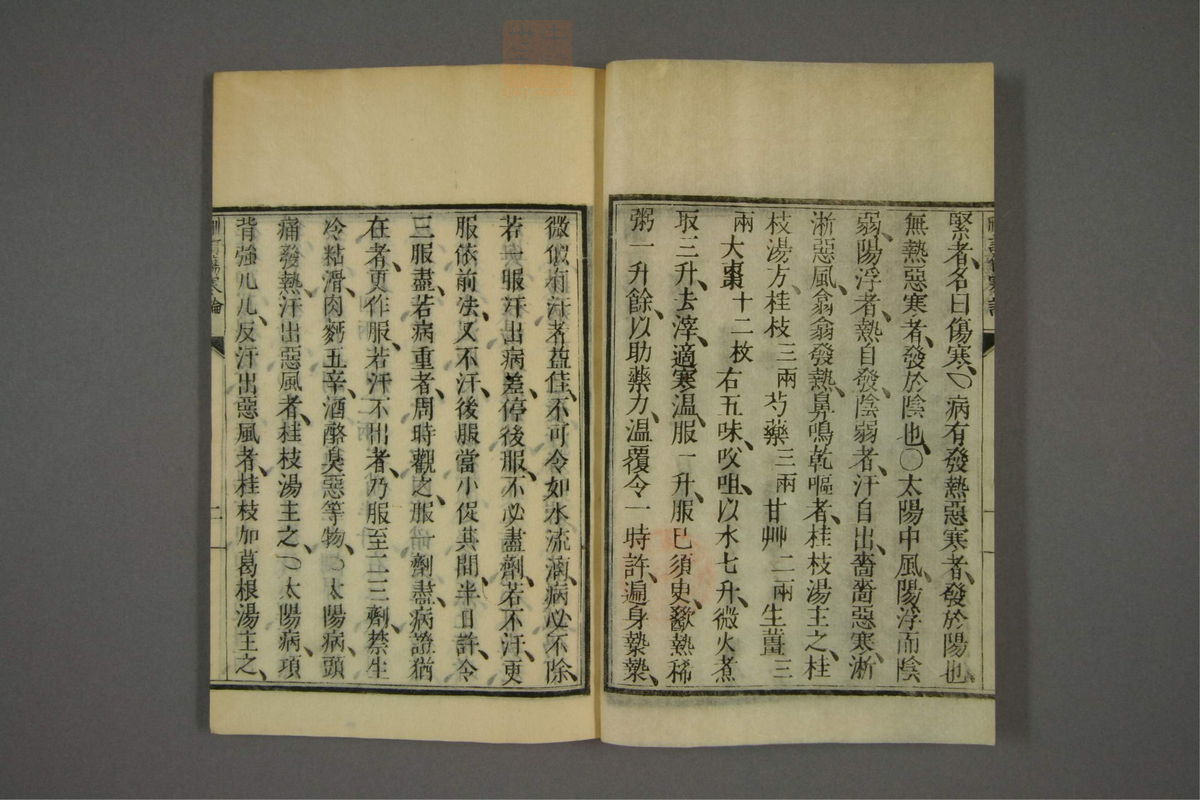 緊者、名曰傷寒、〇病有發熱惡寒者、發於陽也
無熱惡寒者、發於陰也、〇太陽中風、陽浮而陰
弱、陽浮者、熱自發、陰弱者、汗自出、嗇嗇惡寒、淅
淅惡風、翕翕發熱、鼻鳴乾嘔者、桂枝湯主之、桂
枝湯方、桂枝三兩芍藥三兩甘艸二兩生薑三
兩大棗十二枚右五味、㕮咀、以水七升、微火煮
取三升、去滓、適寒温、服一升、服已須臾、歠熱稀
粥一升餘、以助藥力、温覆令一時許、遍身漐漐、
微似有汗者益佳、不可令如水流漓、病必不除
若一服汗出病差、停後服、不必盡劑、若不汗、更
服依前法、又不汗、後服當小促其間、半日許、令
三服盡、若病重者、周時觀之、服一劑盡、病證猶
在者、更作服、若汗不出者、乃服至二三劑、禁生
冷粘滑、肉麪五辛、酒酪臭惡等物、〇太陽病、頭
痛發熱、汗出惡風者、桂枝湯主之、〇太陽病、項
背強几几、反汗出惡風者、桂枝加葛根湯主之、